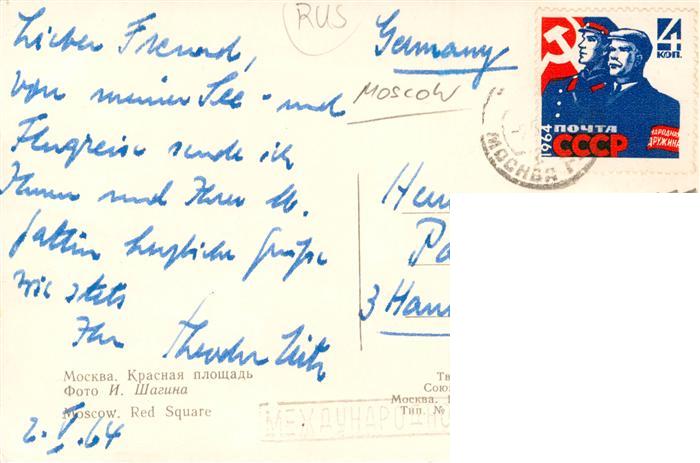 RUS
Lieber Freund,
von meiner See- und
Flugreise sende ich
Ihnen und Ihrer l.
Gattin herzliche Grüße
wie stets
Ihr Theodor
2.V.64
Germany
MOSCOW
3 Han
4
КОП.
1964
ПОЧТА
СССР
НАРОДНАЯ
ДРУЖИНА
МОСКВА
Москва. Красная площадь
Фото И. Шагина
Moscow. Red Square
Тв
Союз
Москва.
Тип. №
МЕЖДУНАРОДНО